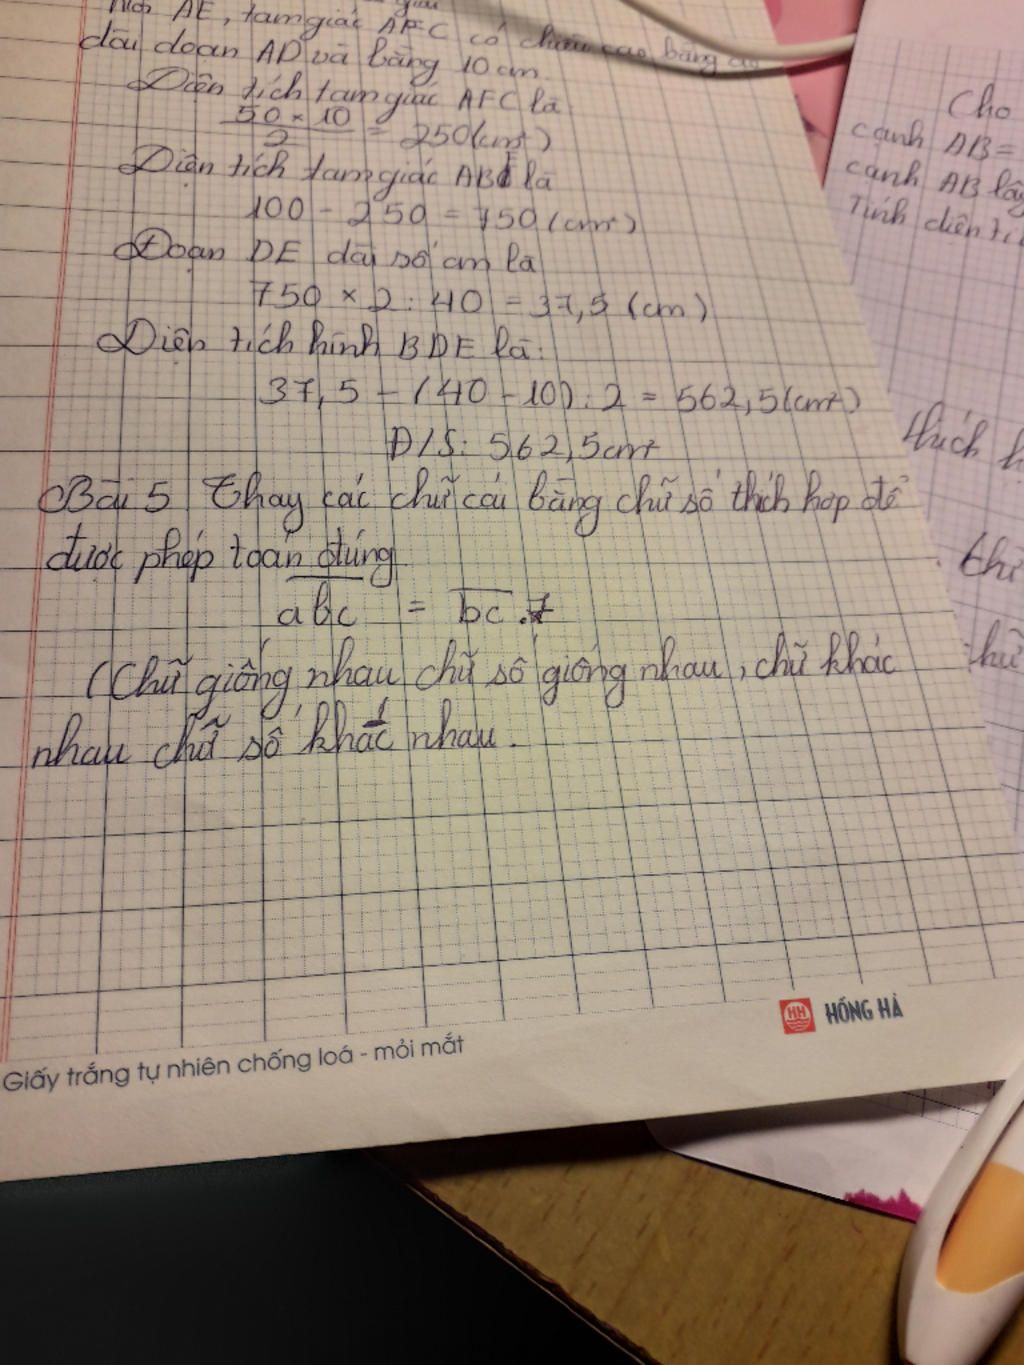 AE, tam giác AFC có chiều cao bằng
dài đoạn AD và bằng 10 cm.
Diện tích tam giác AFC là:
50 × 10
2
= 250(cm²)
Diện tích tam giác ABE là
100 - 250 = 750 (cm²)
Đoạn DE dài số cm là
750 × 2 : 40 = 37,5 (cm)
Diện tích hình BDE là:
37,5 - (40 - 10) : 2 = 562,5 (cm²)
Đ/S: 562,5cm²
Bài 5 Thay các chữ cái bằng chữ số thích hợp để
được phép toán đúng
abc = bc . 7
(Chữ giống nhau chữ số giống nhau, chữ khác
nhau chữ số khác nhau.
Cho
cạnh AB =
cạnh AB lấy
Tính diện
thích
HỒNG HÀ
Giấy trắng tự nhiên chống loá - mỏi mắt